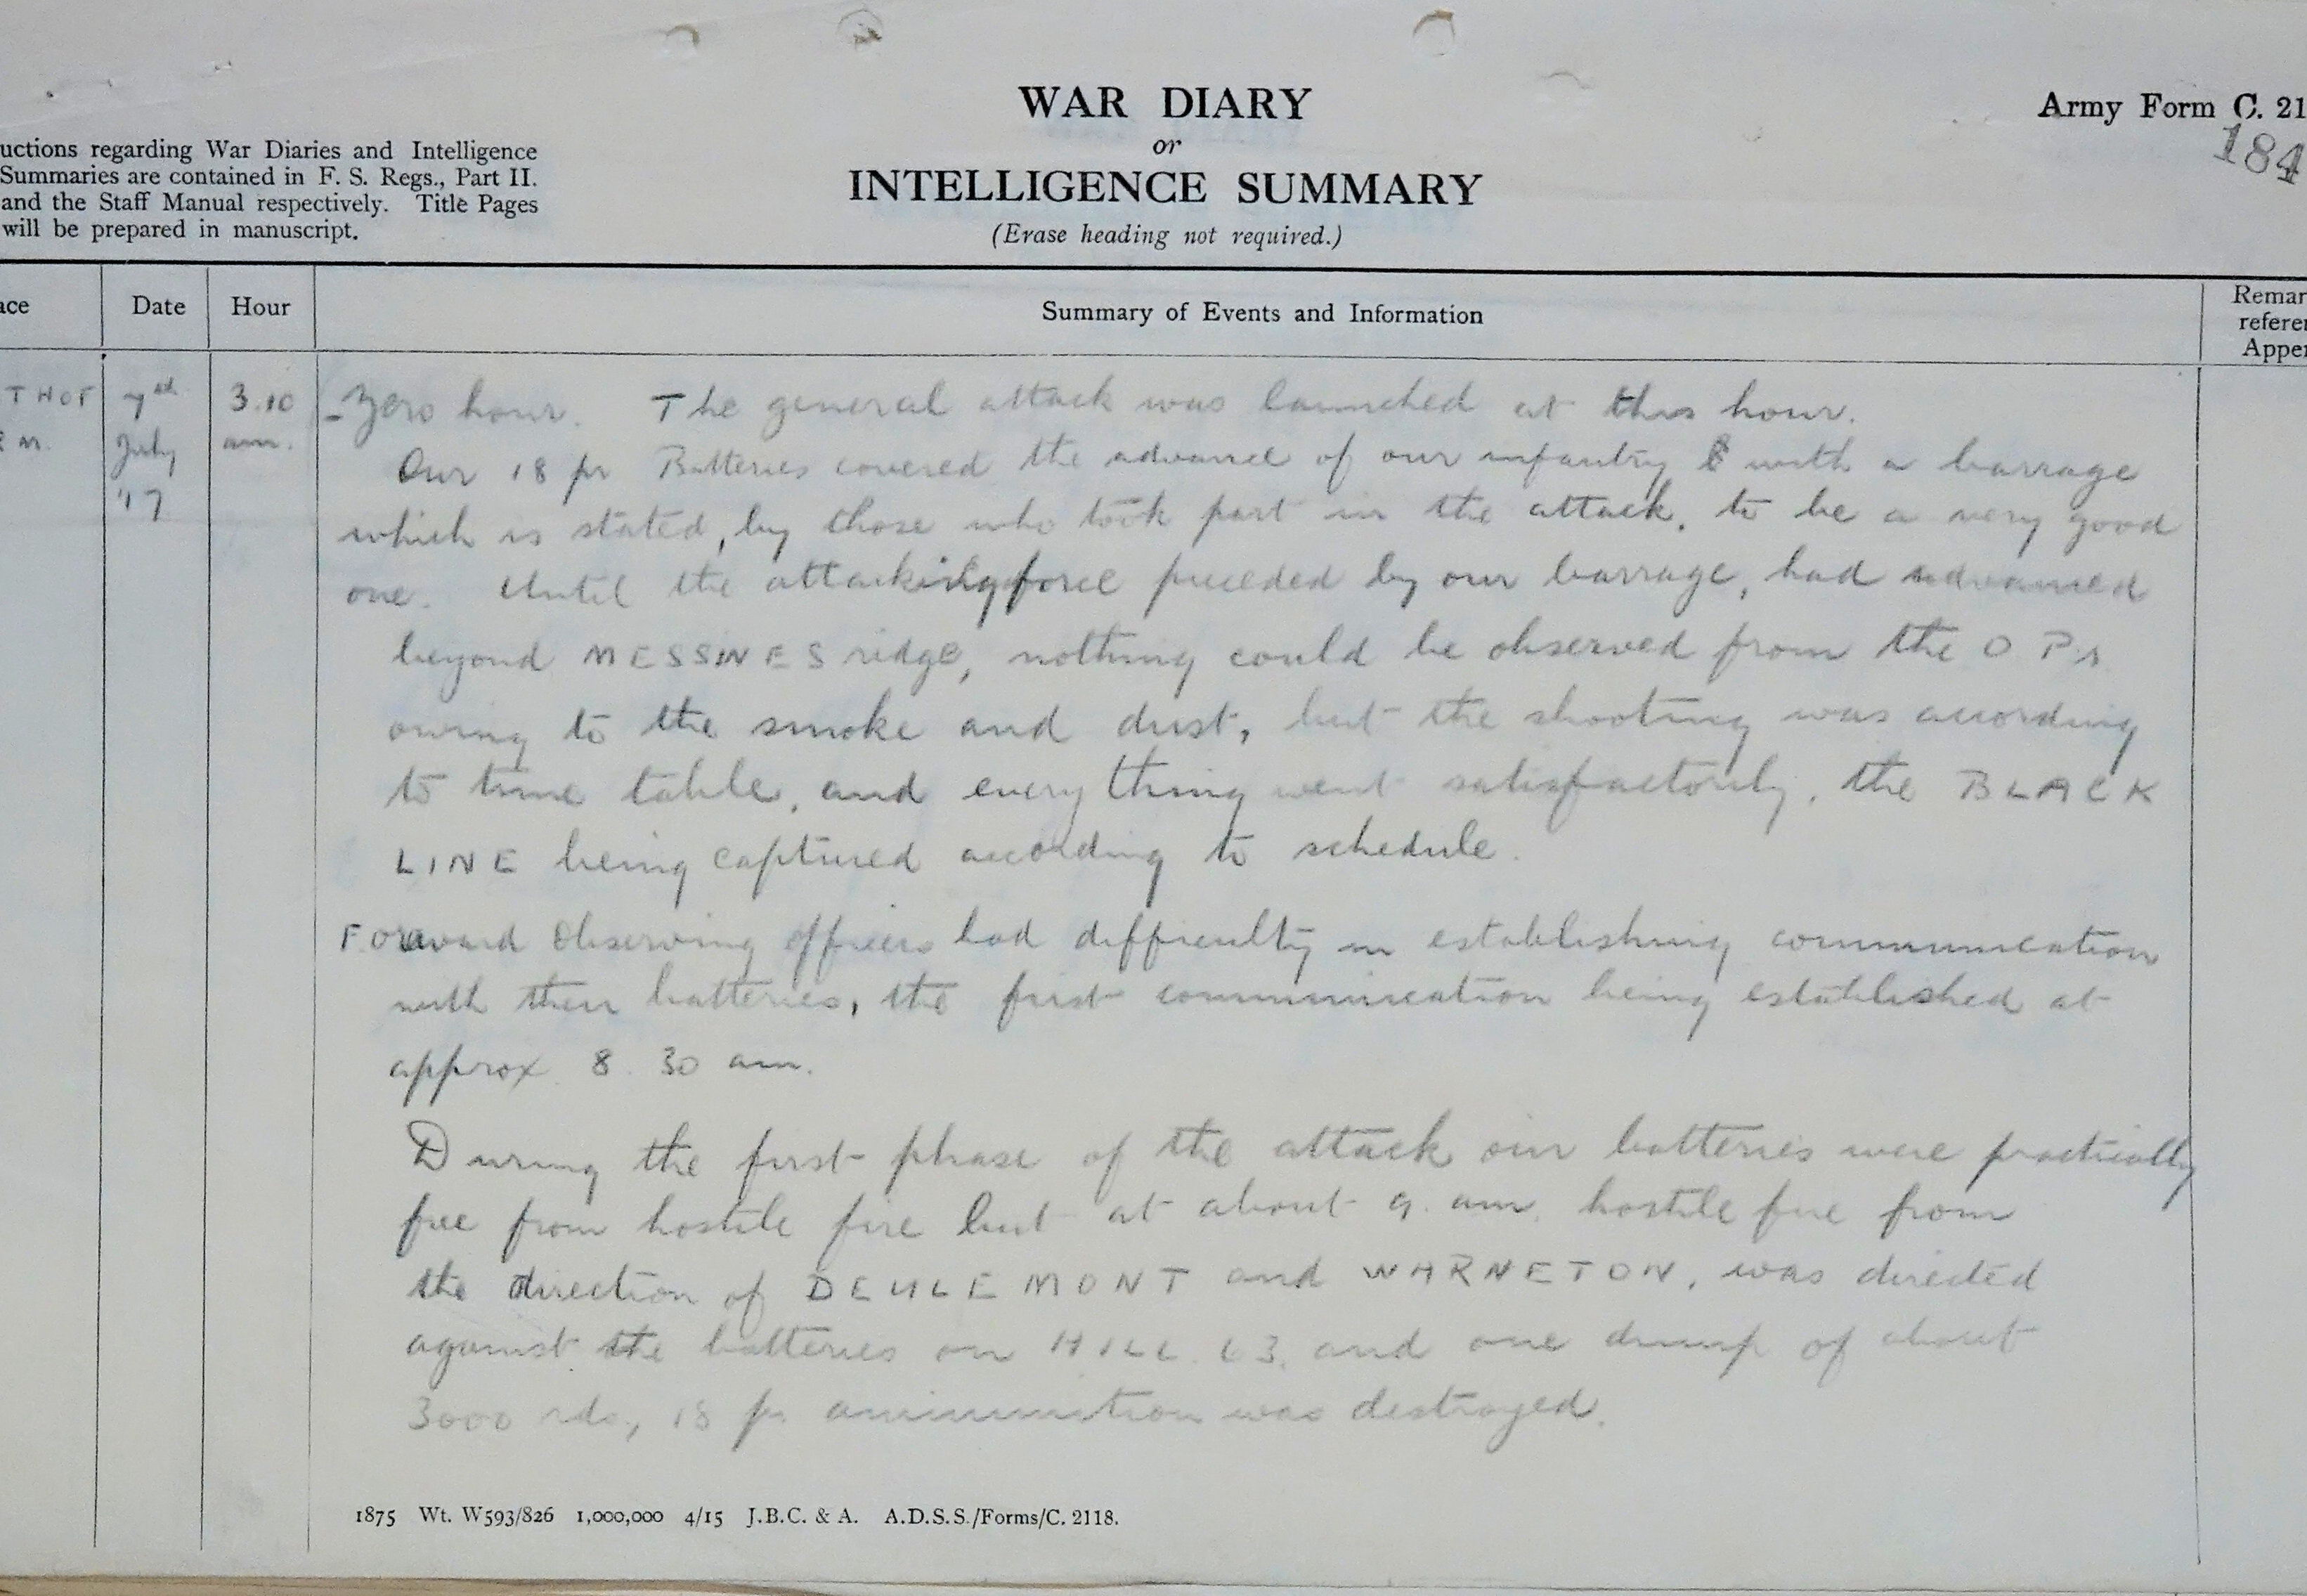 WAR DIARY
or
INTELLIGENCE SUMMARY
(Erase heading not required.)
Army Form C. 21
184
uctions regarding War Diaries and Intelligence
Summaries are contained in F. S. Regs., Part II.
and the Staff Manual respectively. Title Pages
will be prepared in manuscript.
ace Date Hour Summary of Events and Information Remar
referen
Appen
T HOF 7th 3.10 - Zero hour. The general attack was launched at this hour.
M. July am. Our 18 pr Batteries covered the advance of our infantry with a barrage
'17 which is stated, by those who took part in the attack, to be a very good
one. Until the attacking force preceded by our barrage, had advanced
beyond MESSINES ridge, nothing could be observed from the O Ps
owing to the smoke and dust, but the shooting was according
to time table, and everything went satisfactorily, the BLACK
LINE being captured according to schedule.
Forward Observing officers had difficulty in establishing communication
with their batteries, the first communication being established at
approx 8.30 am.
During the first phase of the attack our batteries were practically
free from hostile fire but at about 9. am. hostile fire from
the direction of DEULEMONT and WARNETON, was directed
against the batteries on HILL 63. and one dump of about
3000 rds, 18 pr ammunition was destroyed.
1875 Wt. W593/826 1,000,000 4/15 J.B.C. & A. A.D.S.S./Forms/C. 2118.